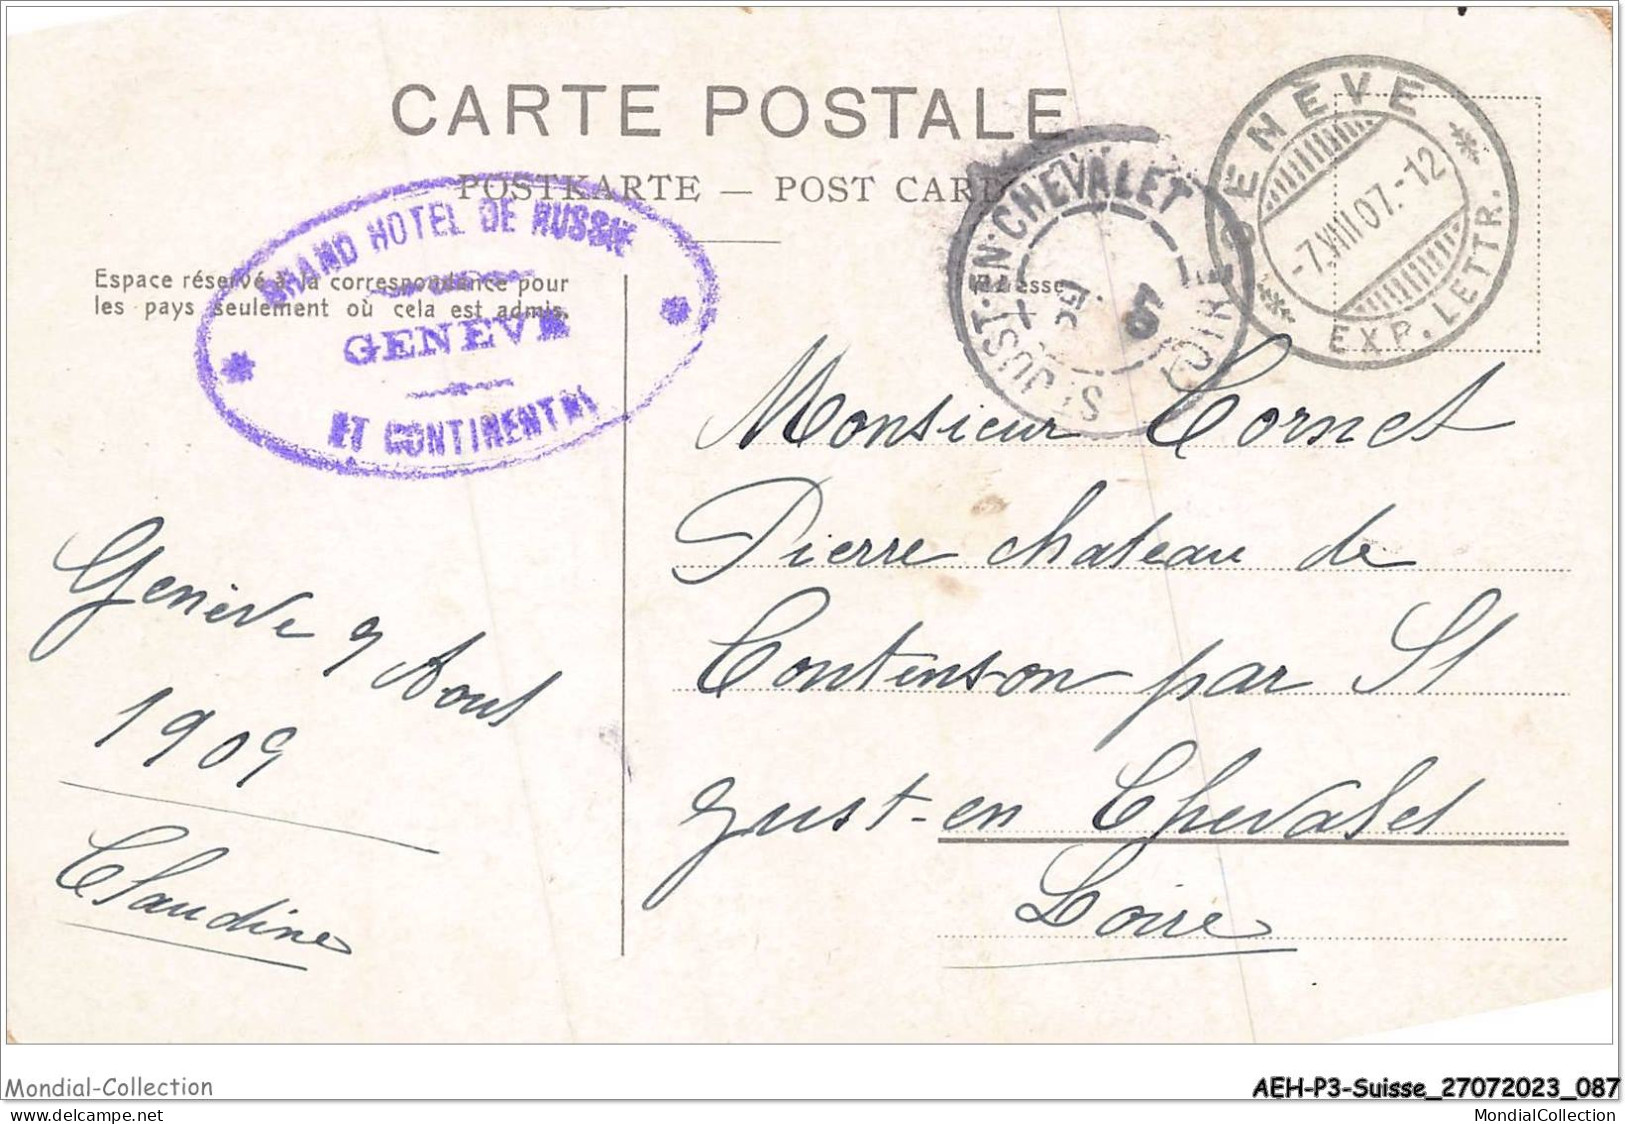 CARTE POSTALE
POSTKARTE — POST CARD
Espace réservé à la correspondance pour
les pays seulement où cela est admis.
Adresse
GRAND HOTEL DE RUSSIE
GENEVE
ET CONTINENTAL
ST-JUST-EN-CHEVALET
LOIRE
GENÈVE
-7.VIII 07.-12
EXP. LETTR.
Monsieur Cornet
Pierre chateau de
Contenson par St
Just-en Chevalet
Loire
Genève 7 Aout
1909
Claudine
Mondial-Collection
AEH-P3-Suisse_27072023_087
www.delcampe.net
MondialCollection